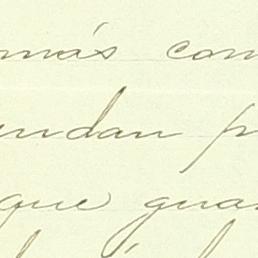 más com
undan p
que gua